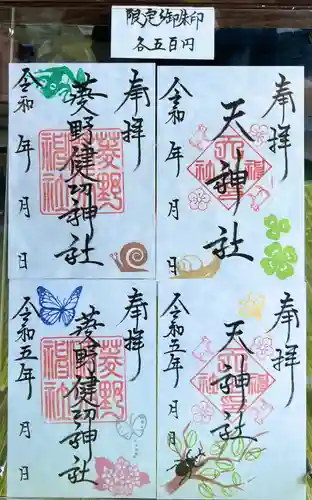 限定御朱印
各五百円
奉拝
天神社
令和 年 月 日
奉拝
菱野健功神社
令和 年 月 日
奉拝
天神社
令和五年 月 日
奉拝
菱野健功神社
令和五年 月 日